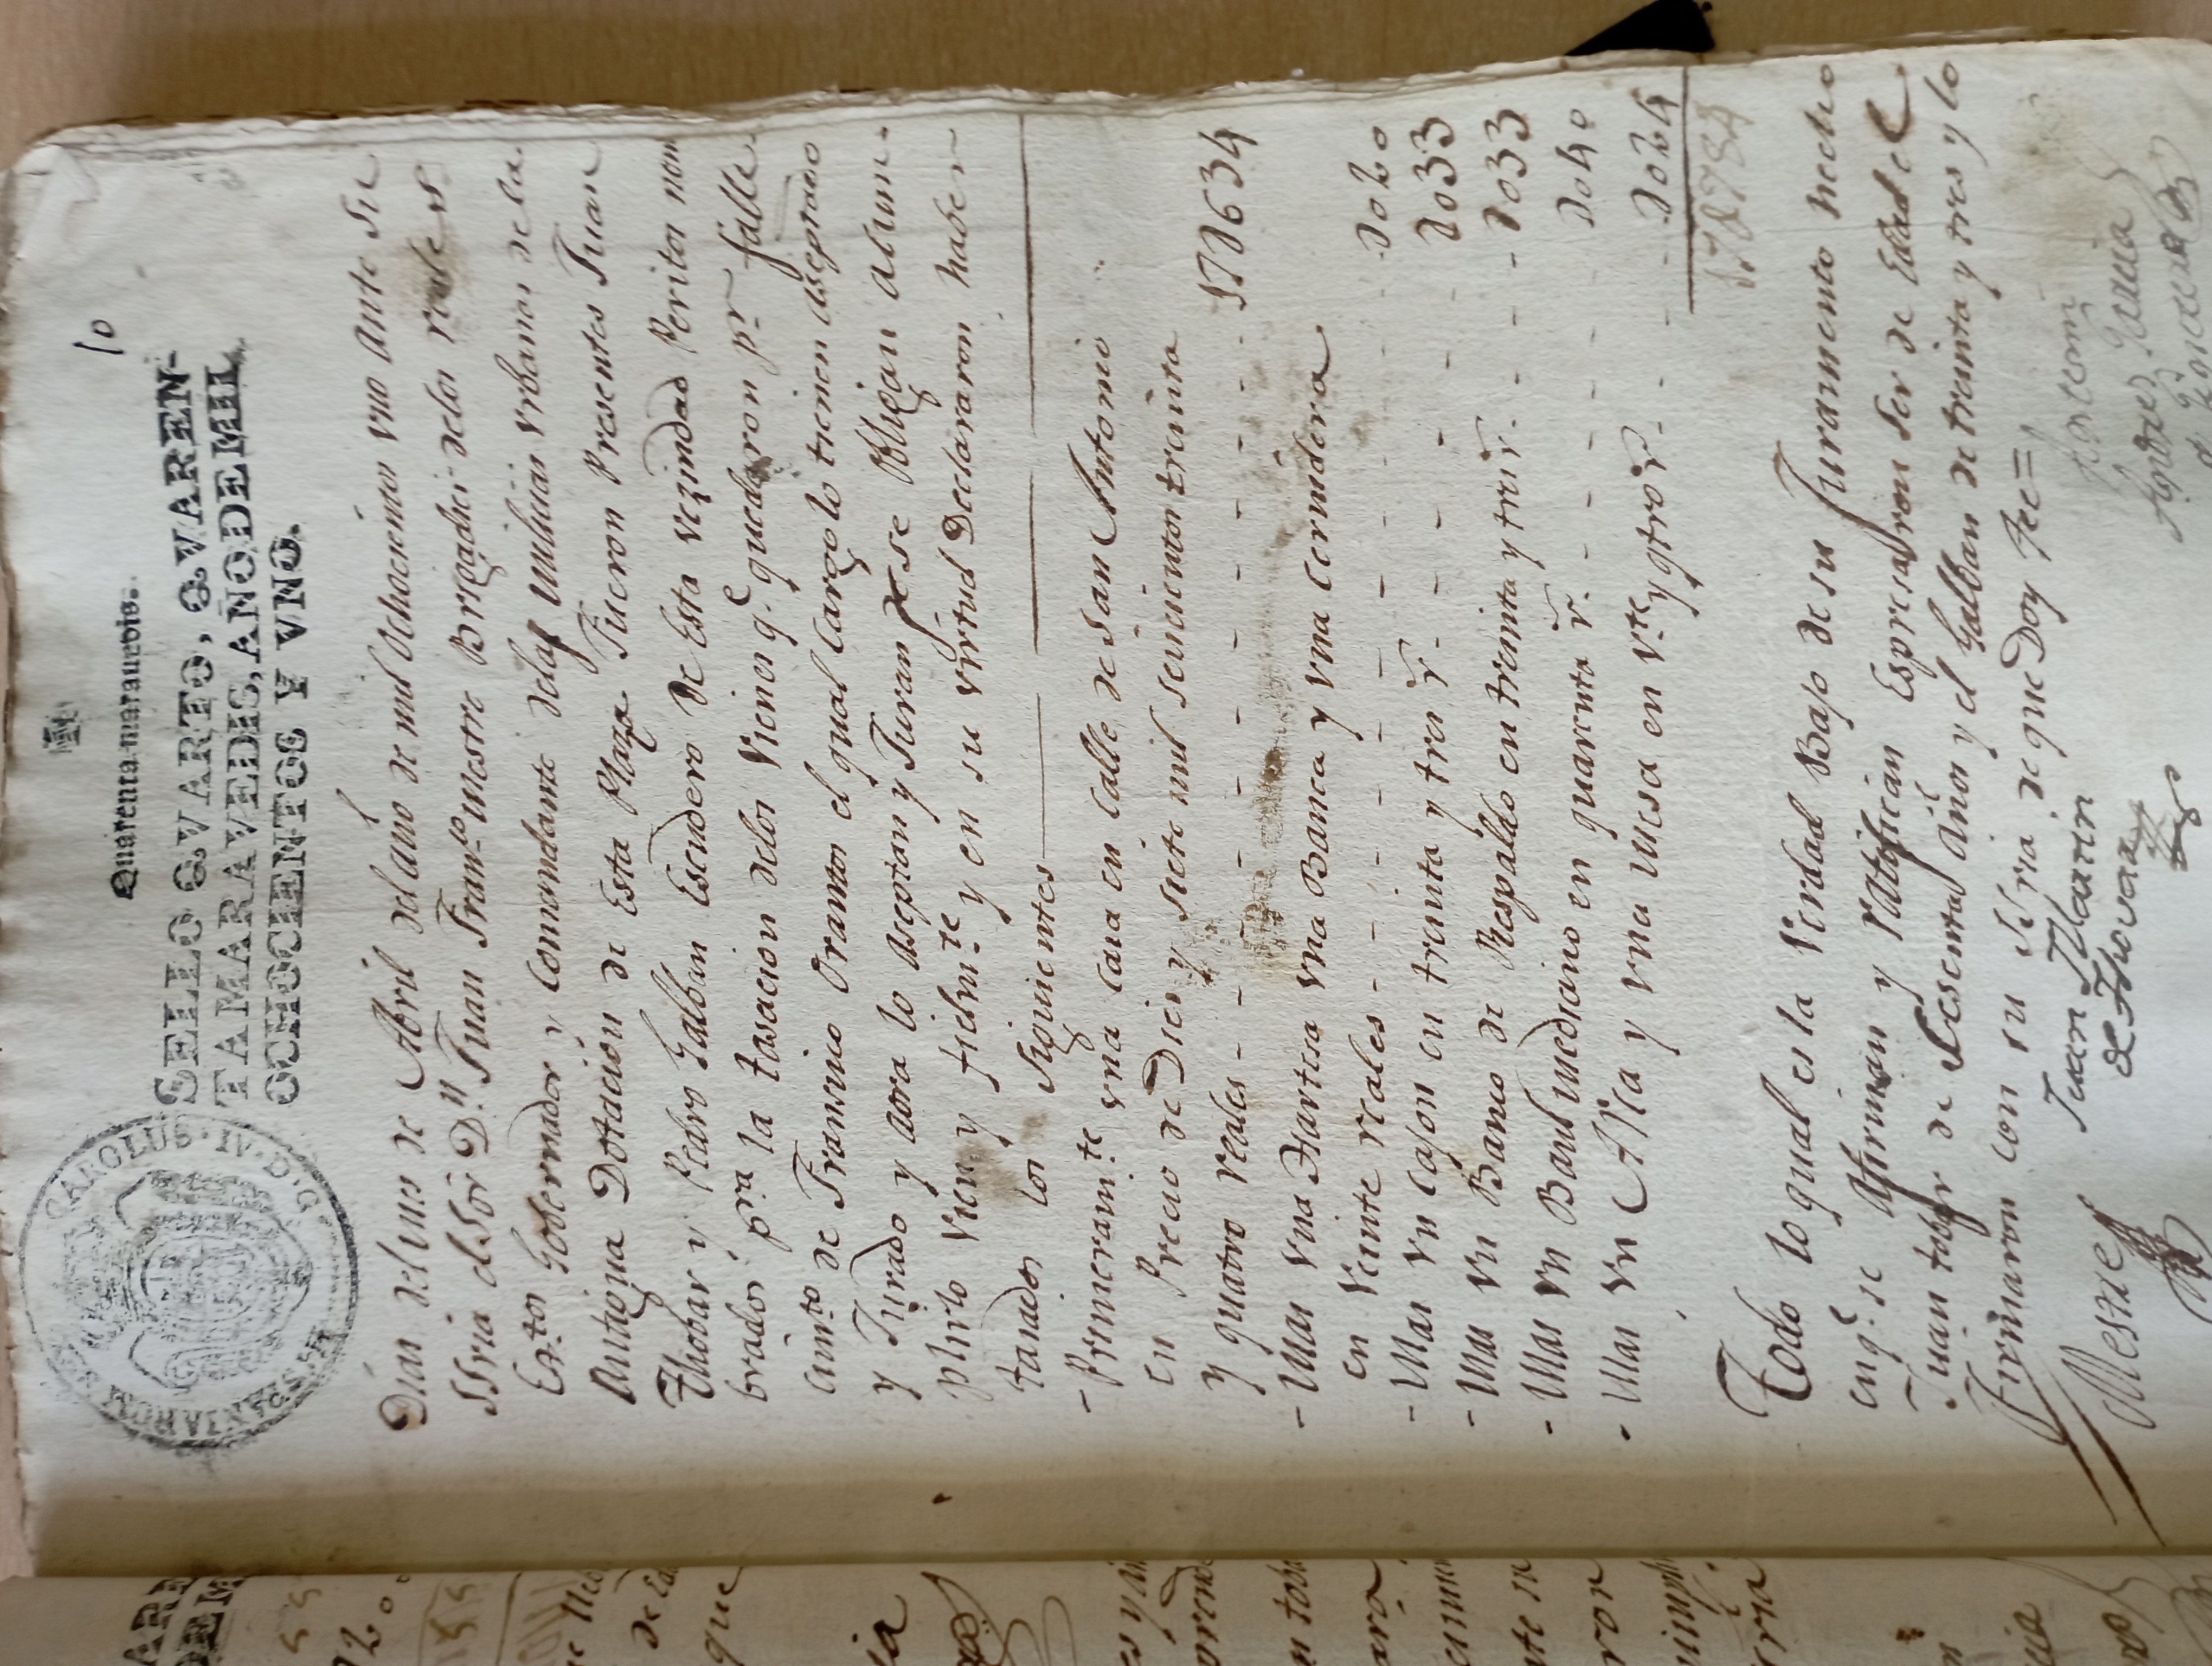 10
Quarenta maravedis.
CAROLUS IV D G HISPANIAROM
SELLO QVARTO, QVAREN-
TA MARAVEDIS, AÑO DE MIL
OCHOCIENTOS Y VNO.
Dias del mes de Abril del año de mil Ochocientos vno ante Su
SSria el Sōr D.n Juan Fran.co Mestre Brigadier delos reales
Ex.tos Gobernador y Comandante delas milicias vrbanas de la
Antigua Dotacion de Esta Plaza Fueron Presentes Juan
Thobar y Pedro Galban Escudero De Esta vezindad Peritos nom
brados p.ra la tasacion delos Vienes q.e quedaron p.r falle-
cim.to de Fransisco Oramos el qual Cargo lo tienen aseptado
y Jurado y aora lo aseptan y Juran se Obligan acum-
plirlo vien y fielm.te y en su virtud Declararon haber
tasados los Siguientes
- Primeram.te vna casa en Calle de San Antonio
en Precio de Dies y siete mil seiscientos treinta
y quatro reales - - - - - - - - - - - 17ꝺ634
- Mas vna Hartesa vna Banca y vna Cernidera
en veinte reales - - - - - - - - - - ꝺ020
- Mas vn Cajon en treinta y tres r̄ - - - - - ꝺ033
- Mas vn Banco de Respaldo en treinta y tres r̄ - - - - ꝺ033
- Mas vn Baul mediano en quarenta r̄. - - - - - ꝺ040
- Mas vn Arca y vna mesa en v.te y qtro r̄ - - - - ꝺ024
17ꝺ784
Todo lo qual es la Verdad Bajo de su Juramento hecho
en q.e se afirman y ratifican Espresaron Ser de Edad el
Juan tobar de Sesenta Años y el Galban de treinta y tres y lo
Firmaron con su SSria de que Doy fee=
Mestre
Juan Martin
de Thovar
Antemi
Andres Garcia